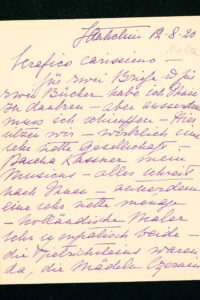 12-8-20
Serafico carissimo —
für zwei Briefe & für
zwei Bücher habe ich Ihnen
zu danken — aber ausserdem
muss ich schimpfen — Hier
sitzen wir — wirklich eine
sehr nette Gesellschaft —
Pascha Kassner mein
Musicus — alles schreit
nach Ihnen — ausserdem
eine sehr nette menage
— holländische Maler
sehr sympatisch beide —
die Dietrichsteins waren
da, die Mädeln